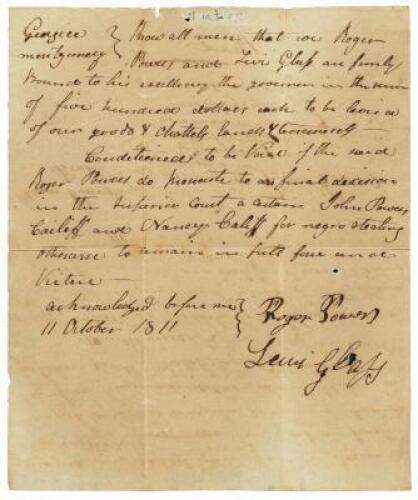 Georgia } Know all men that we Roger
Montgomery } Powers and Levi Glass are firmly
bound to his excellency the governor in the sum
of five hundred dollars each to be levied
of our goods & chattels lands & tenements
Conditioned to be Void if the said
Roger Powers do prosecute to a final decision
in the Superior Court a certain John Powers
and Nancy for negro stealing
otherwise to remain in full force and
Virtue —
acknowledged before me } Roger Powers
11 October 1811
Levi Glass